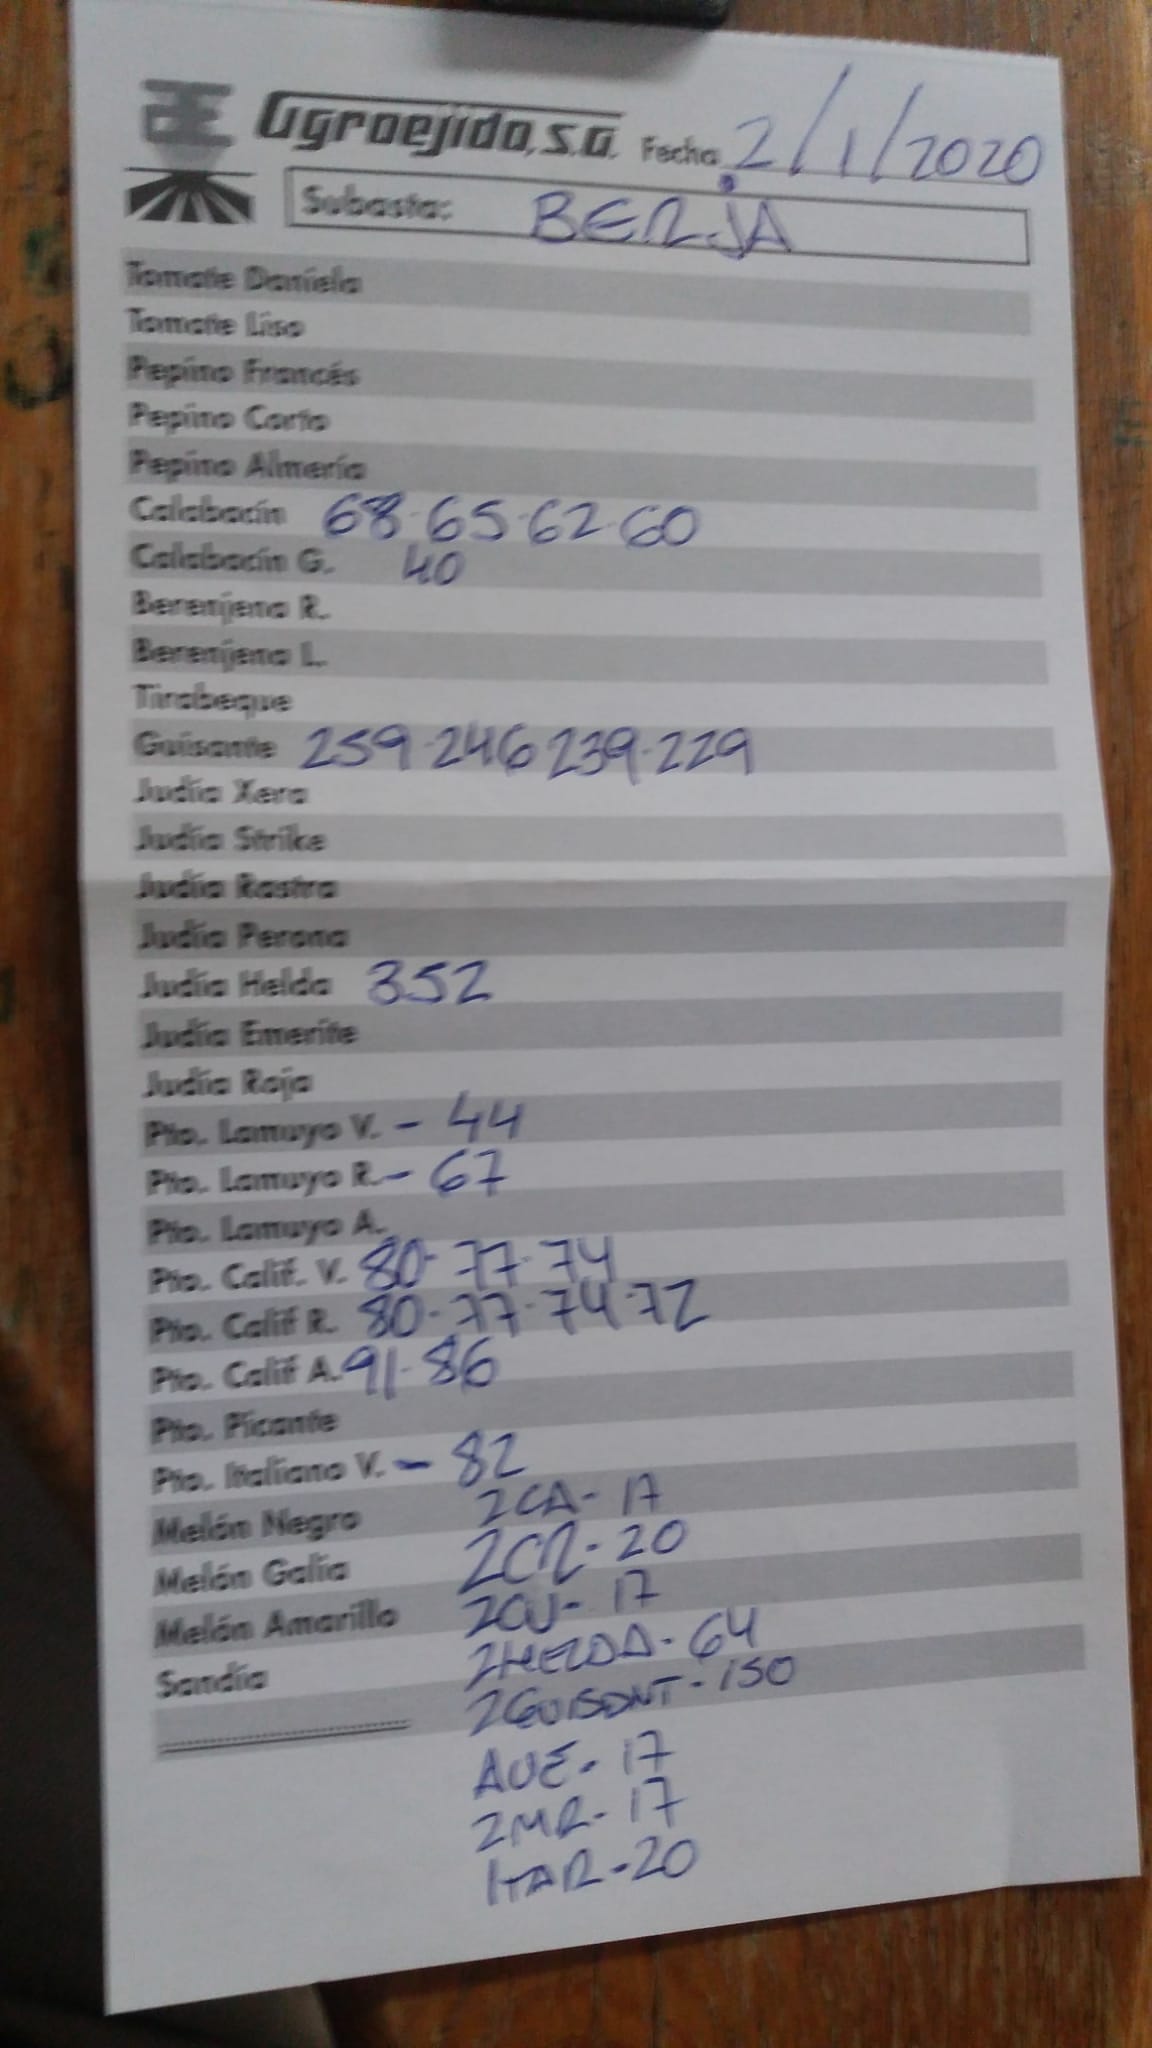 Agroejido, S.A. Fecha 2/1/2020
Subasta: BERJA
Tomate Daniela
Tomate Liso
Pepino Francés
Pepino Corto
Pepino Almería
Calabacín 68-65-62-60
Calabacín G. 40
Berenjena R.
Berenjena L.
Tirabeque
Guisante 259-246 239-229
Judía Xera
Judía Strike
Judía Rastra
Judía Perona
Judía Helda 352
Judía Emerite
Judía Roja
Pto. Lamuyo V. - 44
Pto. Lamuyo R. - 67
Pto. Lamuyo A.
Pto. Calif. V. 80-77-74
Pto. Calif R. 80-77-74-72
Pto. Calif A. 91-86
Pto. Picante
Pto. Italiano V. - 82
Melón Negro 2CA- 17
Melón Galia 2CR- 20
Melón Amarillo 2CV- 17
Sandía 2HELDA- 64
2GUISANT- 150
AVE- 17
2MR- 17
ITAR-20